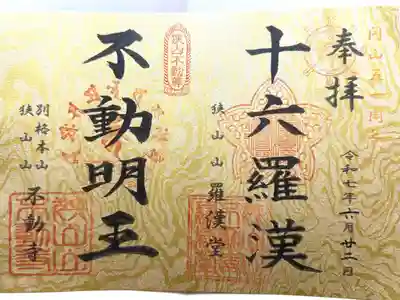 奉拝
令和七年六月廿二日
十六羅漢
狭山山 羅漢堂
狭山不動尊
不動明王
別格本山
狭山山 不動寺